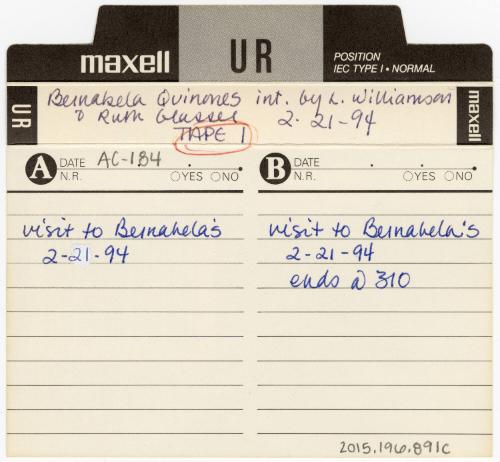 maxell UR POSITION
IEC TYPE I • NORMAL
UR Bernabela Quinones int. by L. Williamson maxell
& Ruth Glasser 2-21-94
TAPE 1
A DATE AC-184 B DATE
N.R. YES NO N.R. YES NO
visit to Bernabela's
2-21-94
visit to Bernabela's
2-21-94
ends @ 310
2015.196.891c